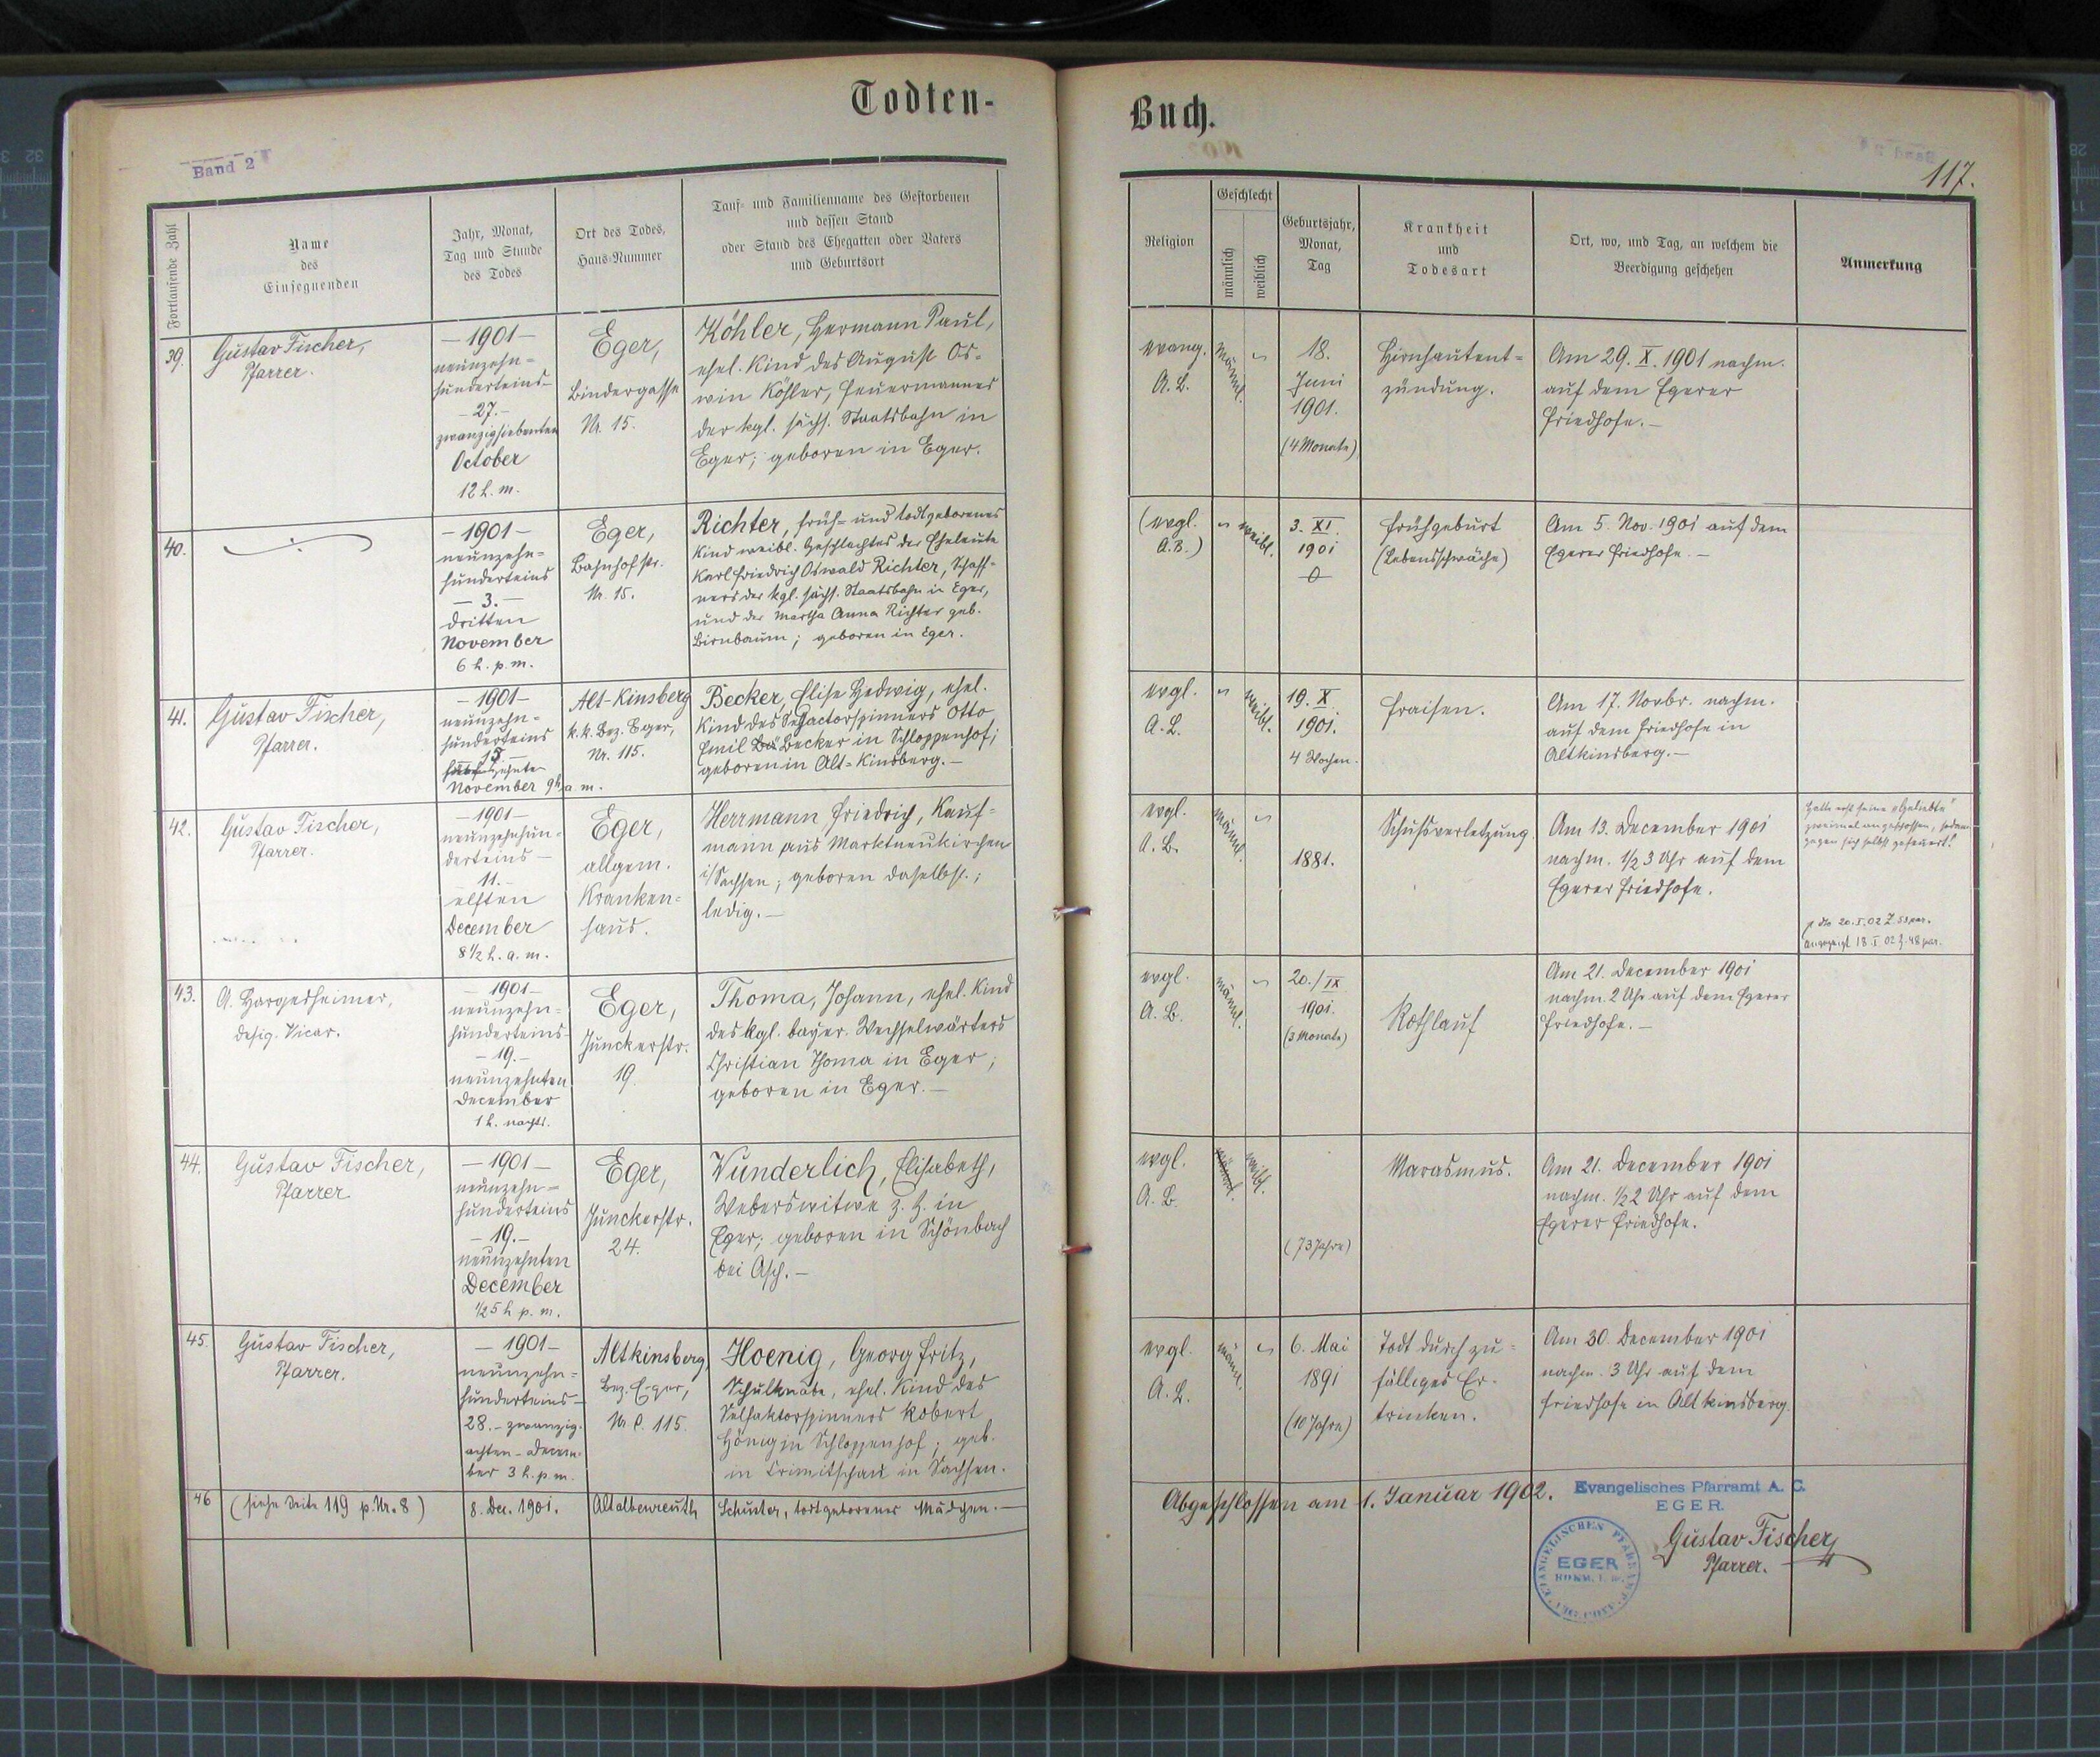 Todten-
Band 2
Fortlaufende Zahl
Name
des
Einsegnenden
Jahr, Monat,
Tag und Stunde
des Todes
Ort des Todes,
Haus-Nummer
Tauf- und Familienname des Gestorbenen
und dessen Stand
oder Stand des Ehegatten oder Vaters
und Geburtsort
39.
Gustav Fischer,
Pfarrer.
- 1901 -
neunzehn-
hunderteins-
- 27. -
zwanzigsiebenten
October
12 h. m.
Eger,
Bindergasse
Nr. 15.
Köhler, Hermann Paul,
ehel. Kind des August Os-
win Köhler, Feuermannes
der kgl. sächs. Staatsbahn in
Eger; geboren in Eger.
40.
- 1901 -
neunzehn-
hunderteins
- 3. -
dritten
November
6 h. p. m.
Eger,
Bahnhofstr.
Nr. 15.
Richter, früh- und todtgeborenes
Kind weibl. Geschlechtes der Eheleute
Karl Friedrich Oswald Richter, Schaff-
ners der kgl. sächs. Staatsbahn in Eger,
und der Martha Anna Richter geb.
Birnbaum; geboren in Eger.
41.
Gustav Fischer,
Pfarrer.
- 1901 -
neunzehn-
hunderteins
15. -
fünfzehnten
November 9 h. a. m.
Alt-Kinsberg
k. k. Bez. Eger,
Nr. 115.
Becker, Elise Hedwig, ehel.
Kind des Selfactorspinners Otto
Emil Becker in Schloppenhof;
geboren in Alt-Kinsberg. -
42.
Gustav Fischer,
Pfarrer.
- 1901 -
neunzehnhun-
derteins -
11. -
elften
December
8 1/2 h. a. m.
Eger,
allgem.
Kranken-
haus.
Herrmann, Friedrich, Kauf-
mann aus Marktneukirchen
i/Sachsen; geboren daselbst.;
ledig. -
43.
A. Hargesheimer,
desig. Vicar.
- 1901 -
neunzehn-
hunderteins-
- 19. -
neunzehnten
December
1 h. nachts.
Eger,
Junckerstr.
19.
Thoma, Johann, ehel. Kind
des kgl. bayer. Wechselwärters
Christian Thoma in Eger;
geboren in Eger. -
44.
Gustav Fischer,
Pfarrer
- 1901 -
neunzehn-
hunderteins
- 19. -
neunzehnten
December
1/2 5 h p. m.
Eger,
Junckerstr.
24.
Wunderlich, Elisabeth,
Weberswitwe z. Z. in
Eger; geboren in Schönbach
bei Asch. -
45.
Gustav Fischer,
Pfarrer.
- 1901 -
neunzehn-
hunderteins -
28. - zwanzig-
achten - Decem-
ber 3 h. p. m.
Altkinsberg,
Bez. Eger,
Nr. C. 115.
Hoenig, Georg Fritz,
Schulknabe, ehel. Kind des
Selfaktorspinners Robert
Hönig in Schloppenhof; geb.
in Crimitschau in Sachsen.
46
(siehe Seite 119 p. Nr. 8)
8. Dec. 1901.
Altalbenreuth
Schuster, todtgeborenes Mädchen. -
Buch.
117.
Religion
Geschlecht
männlich
weiblich
Geburtsjahr,
Monat,
Tag
Krankheit
und
Todesart
Ort, wo, und Tag, an welchem die
Beerdigung geschehen
Anmerkung
evang.
A. B.
männl.
18.
Juni
1901.
(4 Monate)
Hirnhautent-
zündung.
Am 29. X. 1901 nachm.
auf dem Egerer
Friedhofe. -
(evgl.
A. B.)
weibl.
3. XI.
1901
Frühgeburt
(Lebensschwäche)
Am 5. Nov. 1901 auf dem
Egerer Friedhofe. -
evgl.
A. B.
weibl.
19. X.
1901.
4 Wochen.
Fraisen.
Am 17. Novbr. nachm.
auf dem Friedhofe in
Altkinsberg. -
evgl.
A. B.
männl.
1881.
Schußverletzung.
Am 13. December 1901
nachm. 1/2 3 Uhr auf dem
Egerer Friedhofe.
Hatte erst seine "Geliebte"
zweimal angeschossen, sodann
gegen sich selbst gefeuert!
20. I. 02 Z. 53 par.
angezeigt 18. I 02 Z. 48 par.
evgl.
A. B.
männl.
20./IX
1901.
(3 Monate)
Rothlauf
Am 21. December 1901
nachm. 2 Uhr auf dem Egerer
Friedhofe. -
evgl.
A. B.
männl.
weibl.
(73 Jahre)
Marasmus.
Am 21. December 1901
nachm. 1/2 2 Uhr auf dem
Egerer Friedhofe.
evgl.
A. B.
männl.
6. Mai
1891
(10 Jahre)
Todt durch zu-
fälliges Er-
trinken.
Am 30. December 1901
nachm. 3 Uhr auf dem
Friedhofe in Altkinsberg.
Abgeschlossen am 1. Januar 1902.
Evangelisches Pfarramt A. C.
EGER.
Gustav Fischer,
Pfarrer.
EVANGELISCHES PFARRAMT
EGER